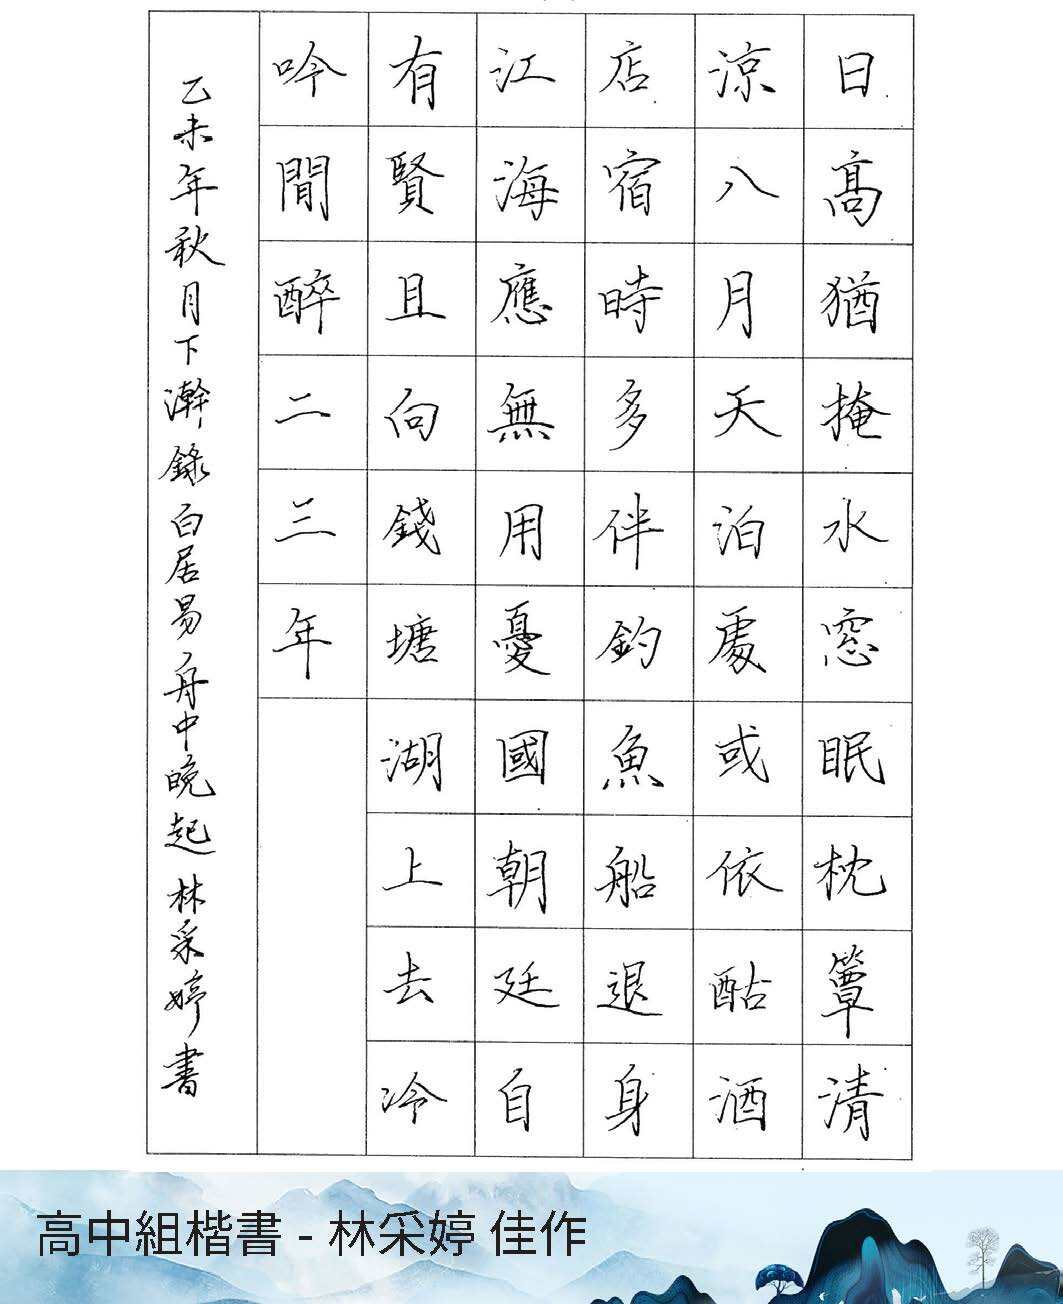 日高猶掩水窓眠枕簟清
涼八月天泊處或依酤酒
店宿時多伴釣魚船退身
江海應無用憂國朝廷自
有賢且向錢塘湖上去冷
吟閒醉二三年
乙未年秋月下澣錄白居易舟中晚起林采婷書
高中組楷書 - 林采婷 佳作